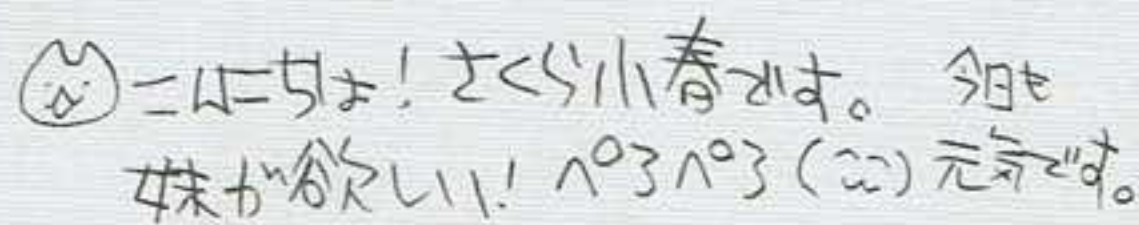 こんにちは！さくら小春です。 今日も
妹が欲しい！ペろペろ(^ω^)元気です。